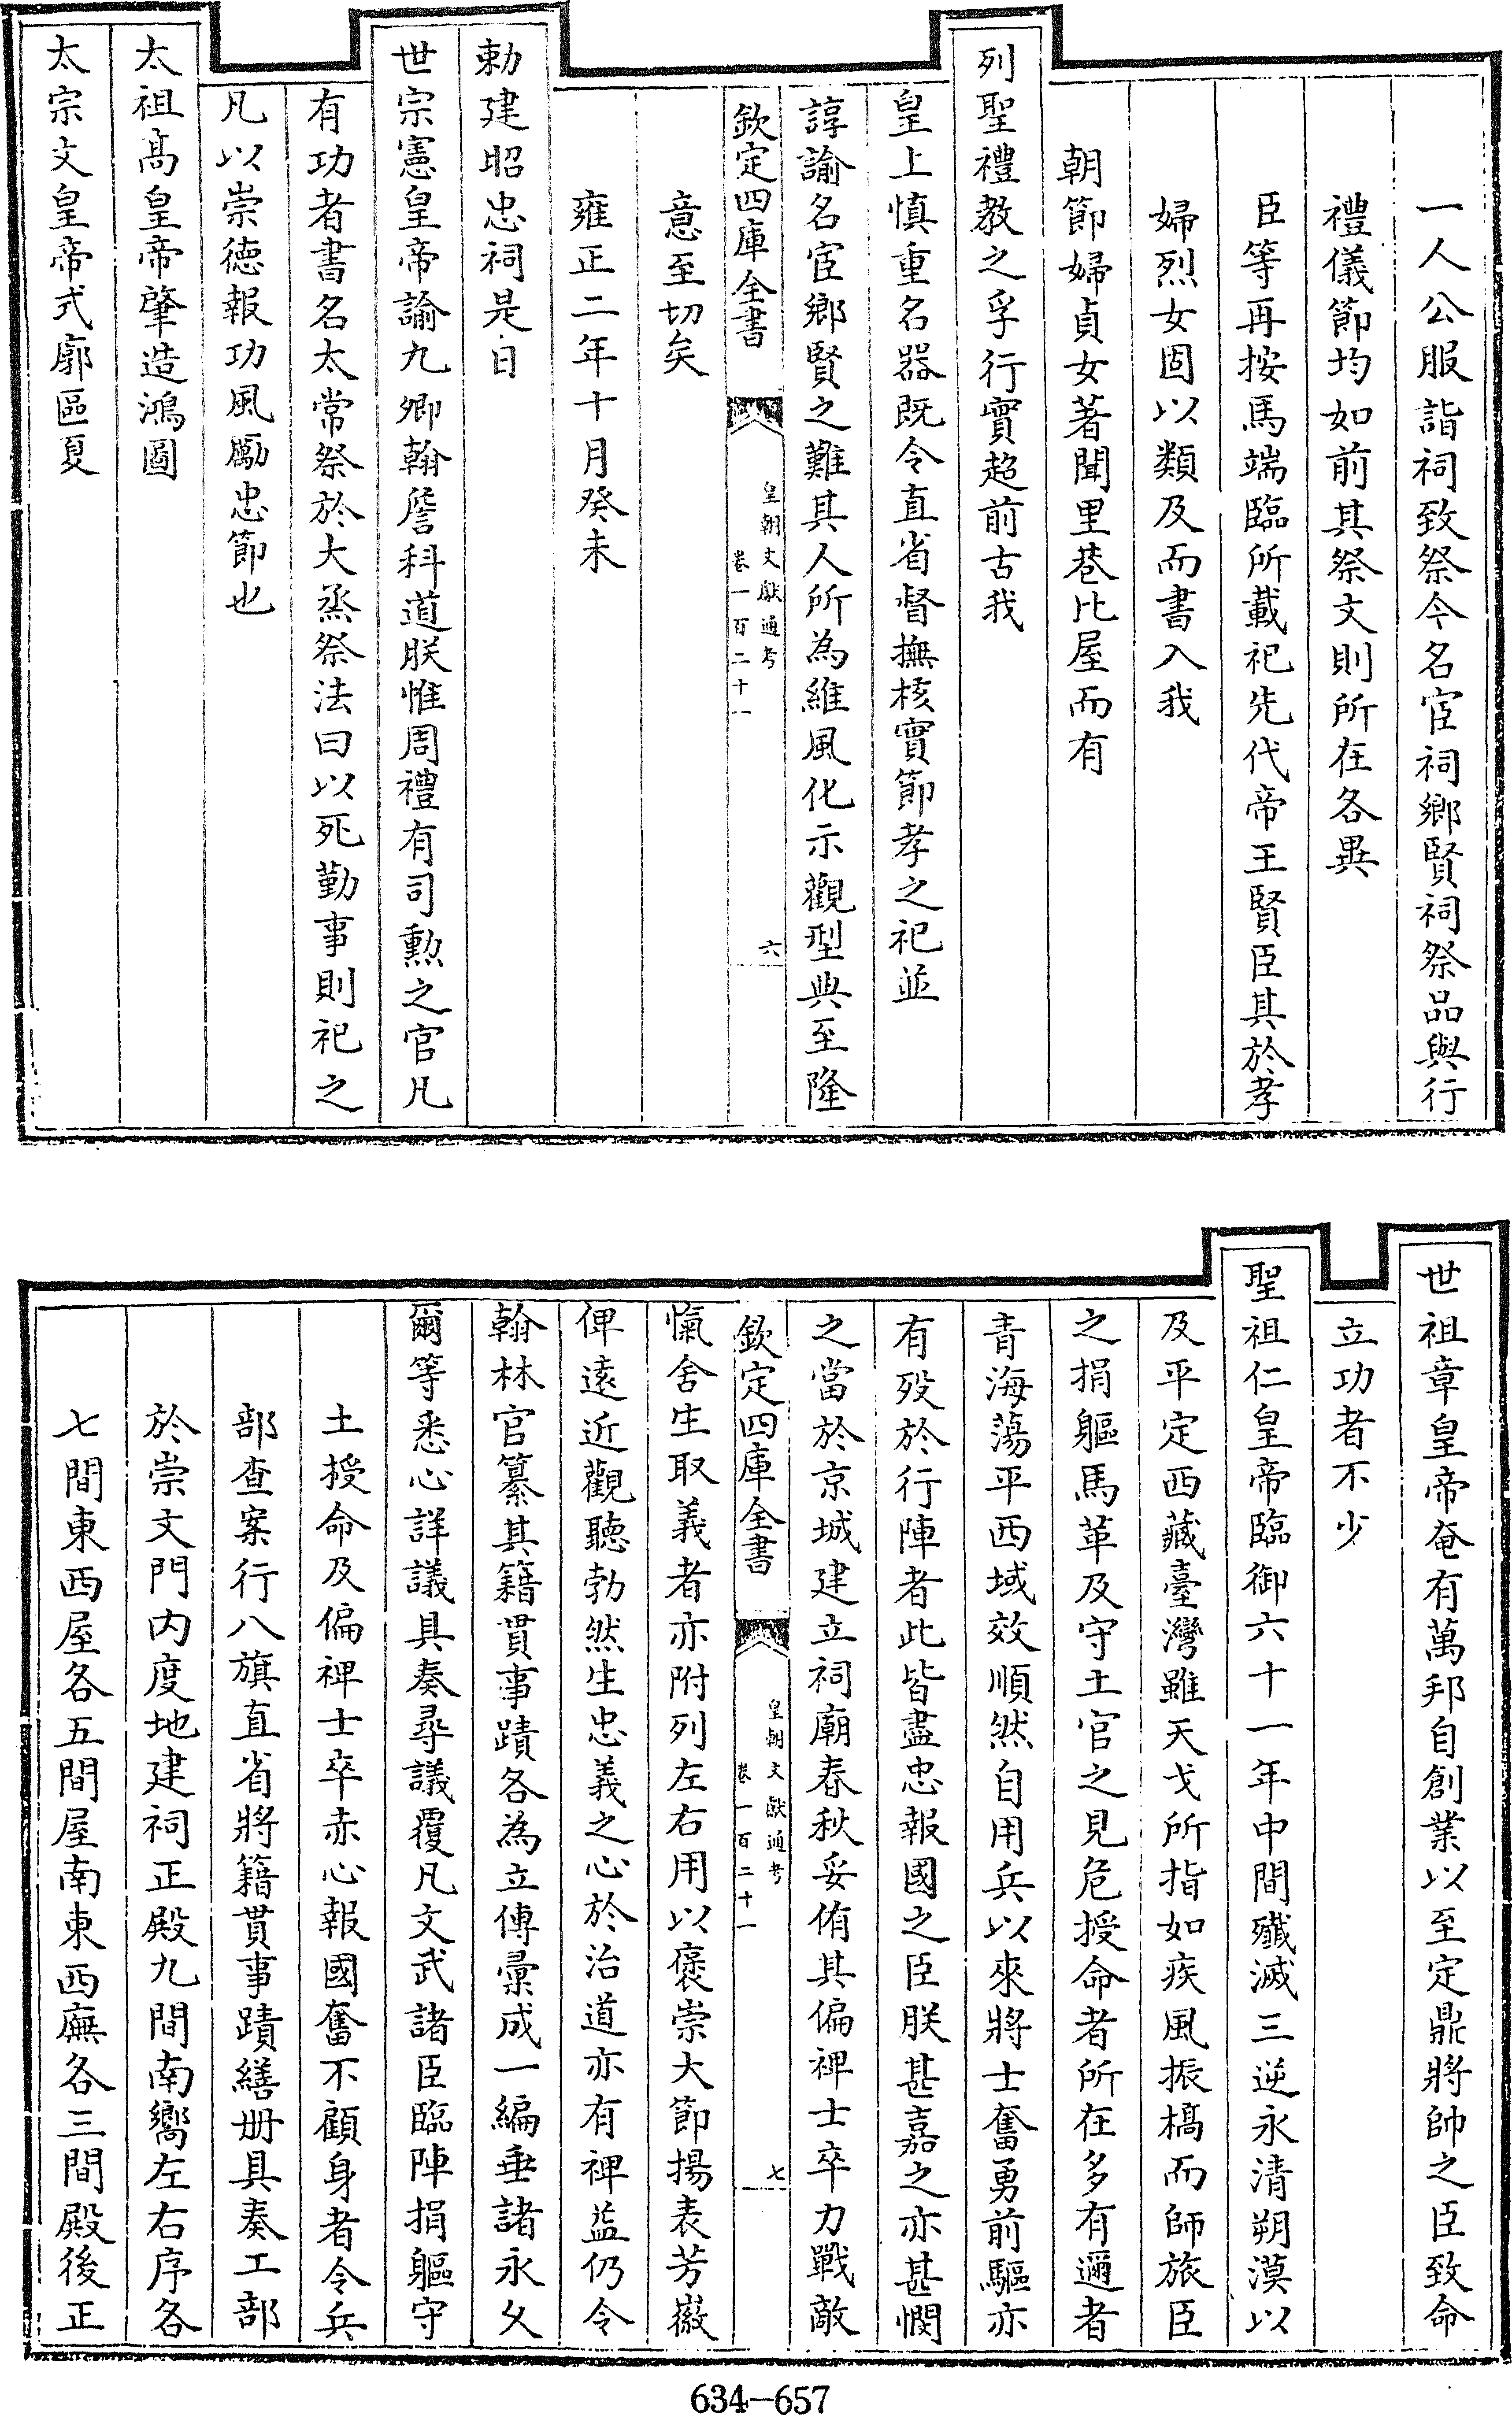 一人公服詣祠致祭今名宦祠鄉賢祠祭品與行
禮儀節均如前其祭文則所在各異
臣等再按馬端臨所載祀先代帝王賢臣其於孝
婦烈女固以類及而書入我
朝節婦貞女著聞里巷比屋而有
列聖禮教之孚行實超前古我
皇上慎重名器既令直省督撫核實節孝之祀並
諄諭名宦鄉賢之難其人所為維風化示觀型典至隆
欽定四庫全書
皇朝文獻通考
卷一百二十一
六
意至切矣
雍正二年十月癸未
勅建昭忠祠是日
世宗憲皇帝諭九卿翰詹科道朕惟周禮有司勲之官凡
有功者書名太常祭於大烝祭法曰以死勤事則祀之
凡以崇德報功風勵忠節也
太祖高皇帝肇造鴻圖
太宗文皇帝式廓區夏
世祖章皇帝奄有萬邦自創業以至定鼎將帥之臣致命
立功者不少
聖祖仁皇帝臨御六十一年中間殲滅三逆永清朔漠以
及平定西藏臺灣雖天戈所指如疾風振槁而師旅臣
之捐軀馬革及守土官之見危授命者所在多有邇者
青海蕩平西域效順然自用兵以來將士奮勇前驅亦
有歿於行陣者此皆盡忠報國之臣朕甚嘉之亦甚憫
之當於京城建立祠廟春秋妥侑其偏裨士卒力戰敵
欽定四庫全書
皇朝文獻通考
卷一百二十一
七
愾舍生取義者亦附列左右用以褒崇大節揚表芳徽
俾遠近觀聽勃然生忠義之心於治道亦有裨益仍令
翰林官纂其籍貫事蹟各為立傳彙成一編垂諸永久
爾等悉心詳議具奏尋議覆凡文武諸臣臨陣捐軀守
土授命及偏裨士卒赤心報國奮不顧身者令兵
部查案行八旗直省將籍貫事蹟繕冊具奏工部
於崇文門内度地建祠正殿九間南嚮左右序各
七間東西屋各五間屋南東西廡各三間殿後正
634—657